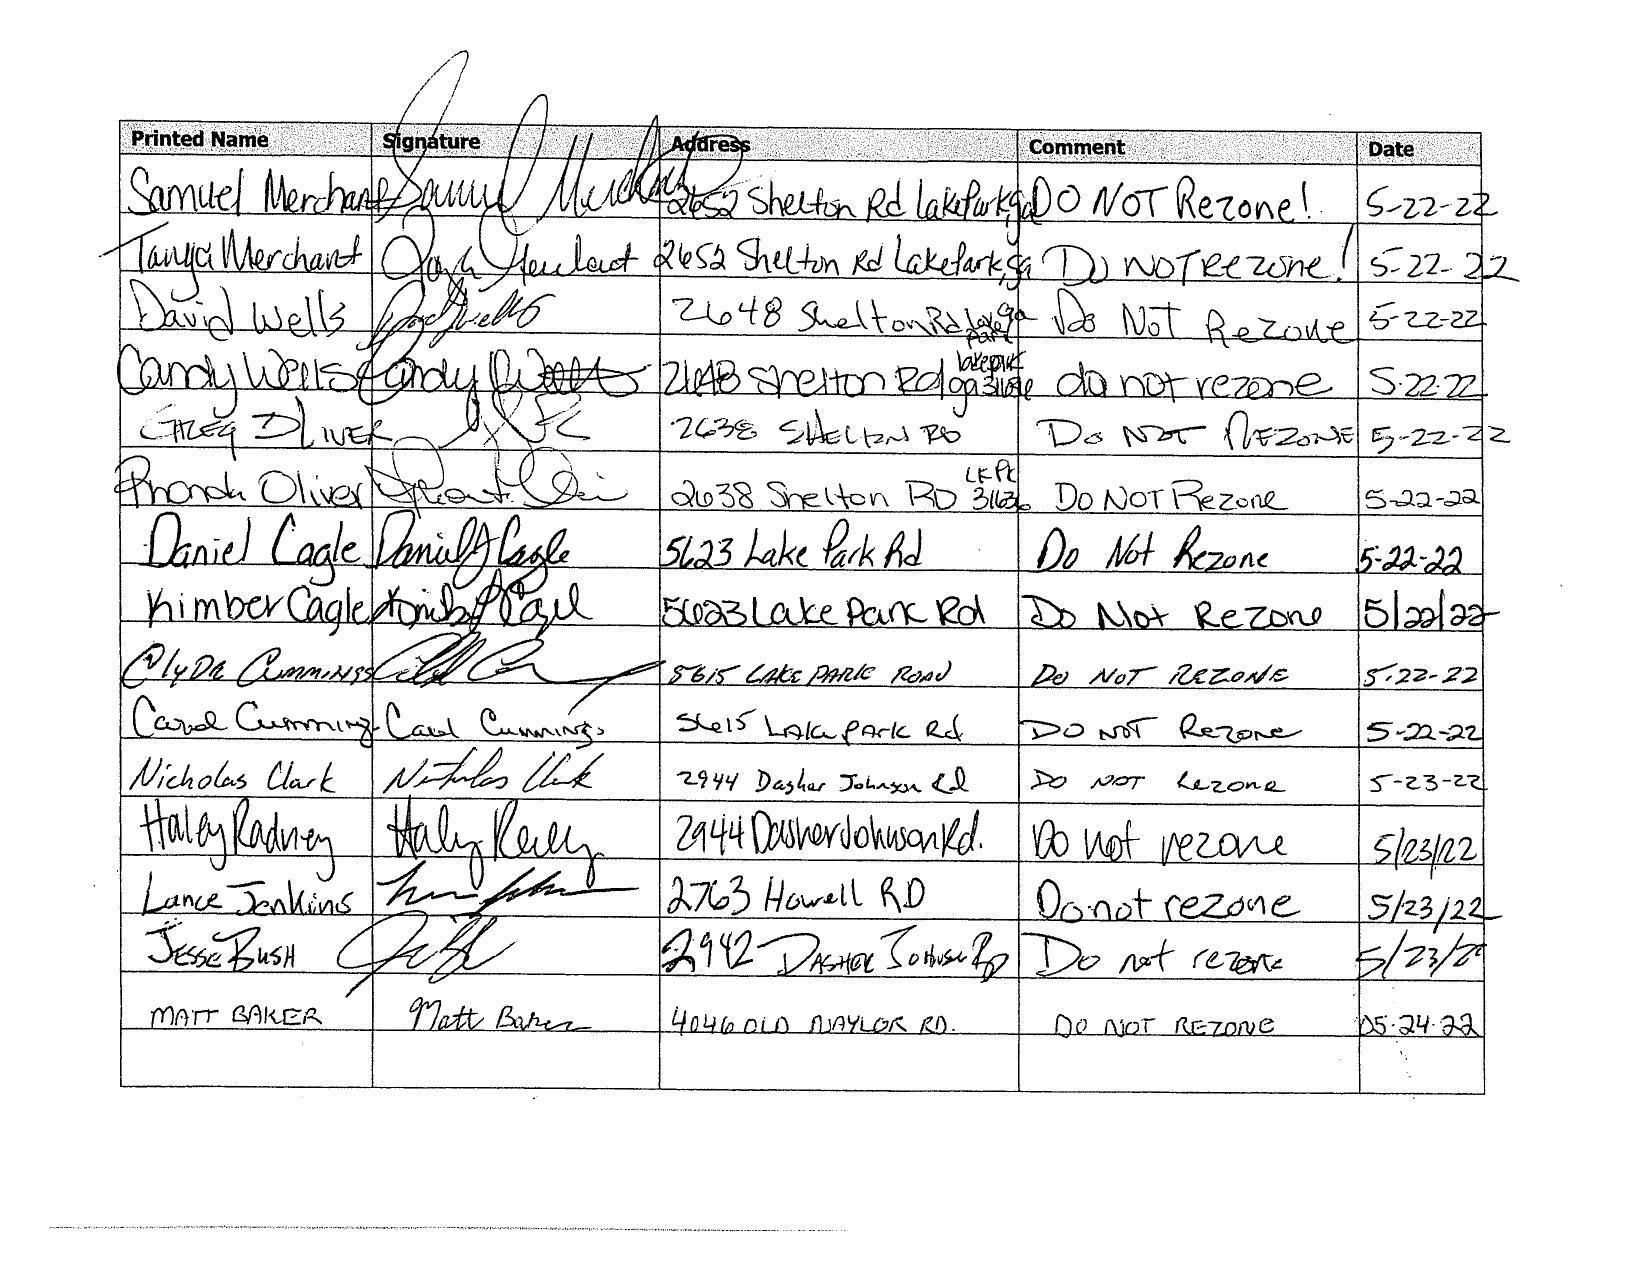 Printed Name Signature Address Comment Date
Samuel Merchant Samuel Merchant 2652 Shelton Rd Lake Park, ga DO NOT Rezone! 5-22-22
Tanya Merchant Tanya Merchant 2652 Shelton Rd Lake Park, ga DO NOT REZONE! 5-22-22
David Wells David Wells 2648 Shelton Rd Lake Park ga Do Not Rezone 5-22-22
Candy Wells Candy Wells 2648 Shelton Rd lake park ga 31636 do not rezone 5-22-22
GREG OLIVER 2638 SHELTON RD DO NOT REZONE 5-22-22
Rhonda Oliver 2638 Shelton RD LK PK 31636 DO NOT Rezone 5-22-22
Daniel Cagle Daniel J Cagle 5623 Lake Park Rd Do Not Rezone 5-22-22
Kimber Cagle 5623 Lake Park Rd Do Not Rezone 5/22/22
Clyde Cummings 5615 LAKE PARK ROAD DO NOT REZONE 5-22-22
Carol Cummings Carol Cummings 5615 LAKE PARK Rd DO NOT Rezone 5-22-22
Nicholas Clark Nicholas Clark 2944 Dasher Johnson Rd DO NOT Rezone 5-23-22
Haley Radney Haley 2944 Dasher Johnson Rd. Do not rezone 5/23/22
Lance Jenkins 2763 Howell RD Do not rezone 5/23/22
JESSE BUSH 2942 DASHER JOHNSON RD Do not rezone 5/23/22
MATT BAKER Matt Baker 4046 OLD NAYLOR RD. DO NOT REZONE 05-24-22